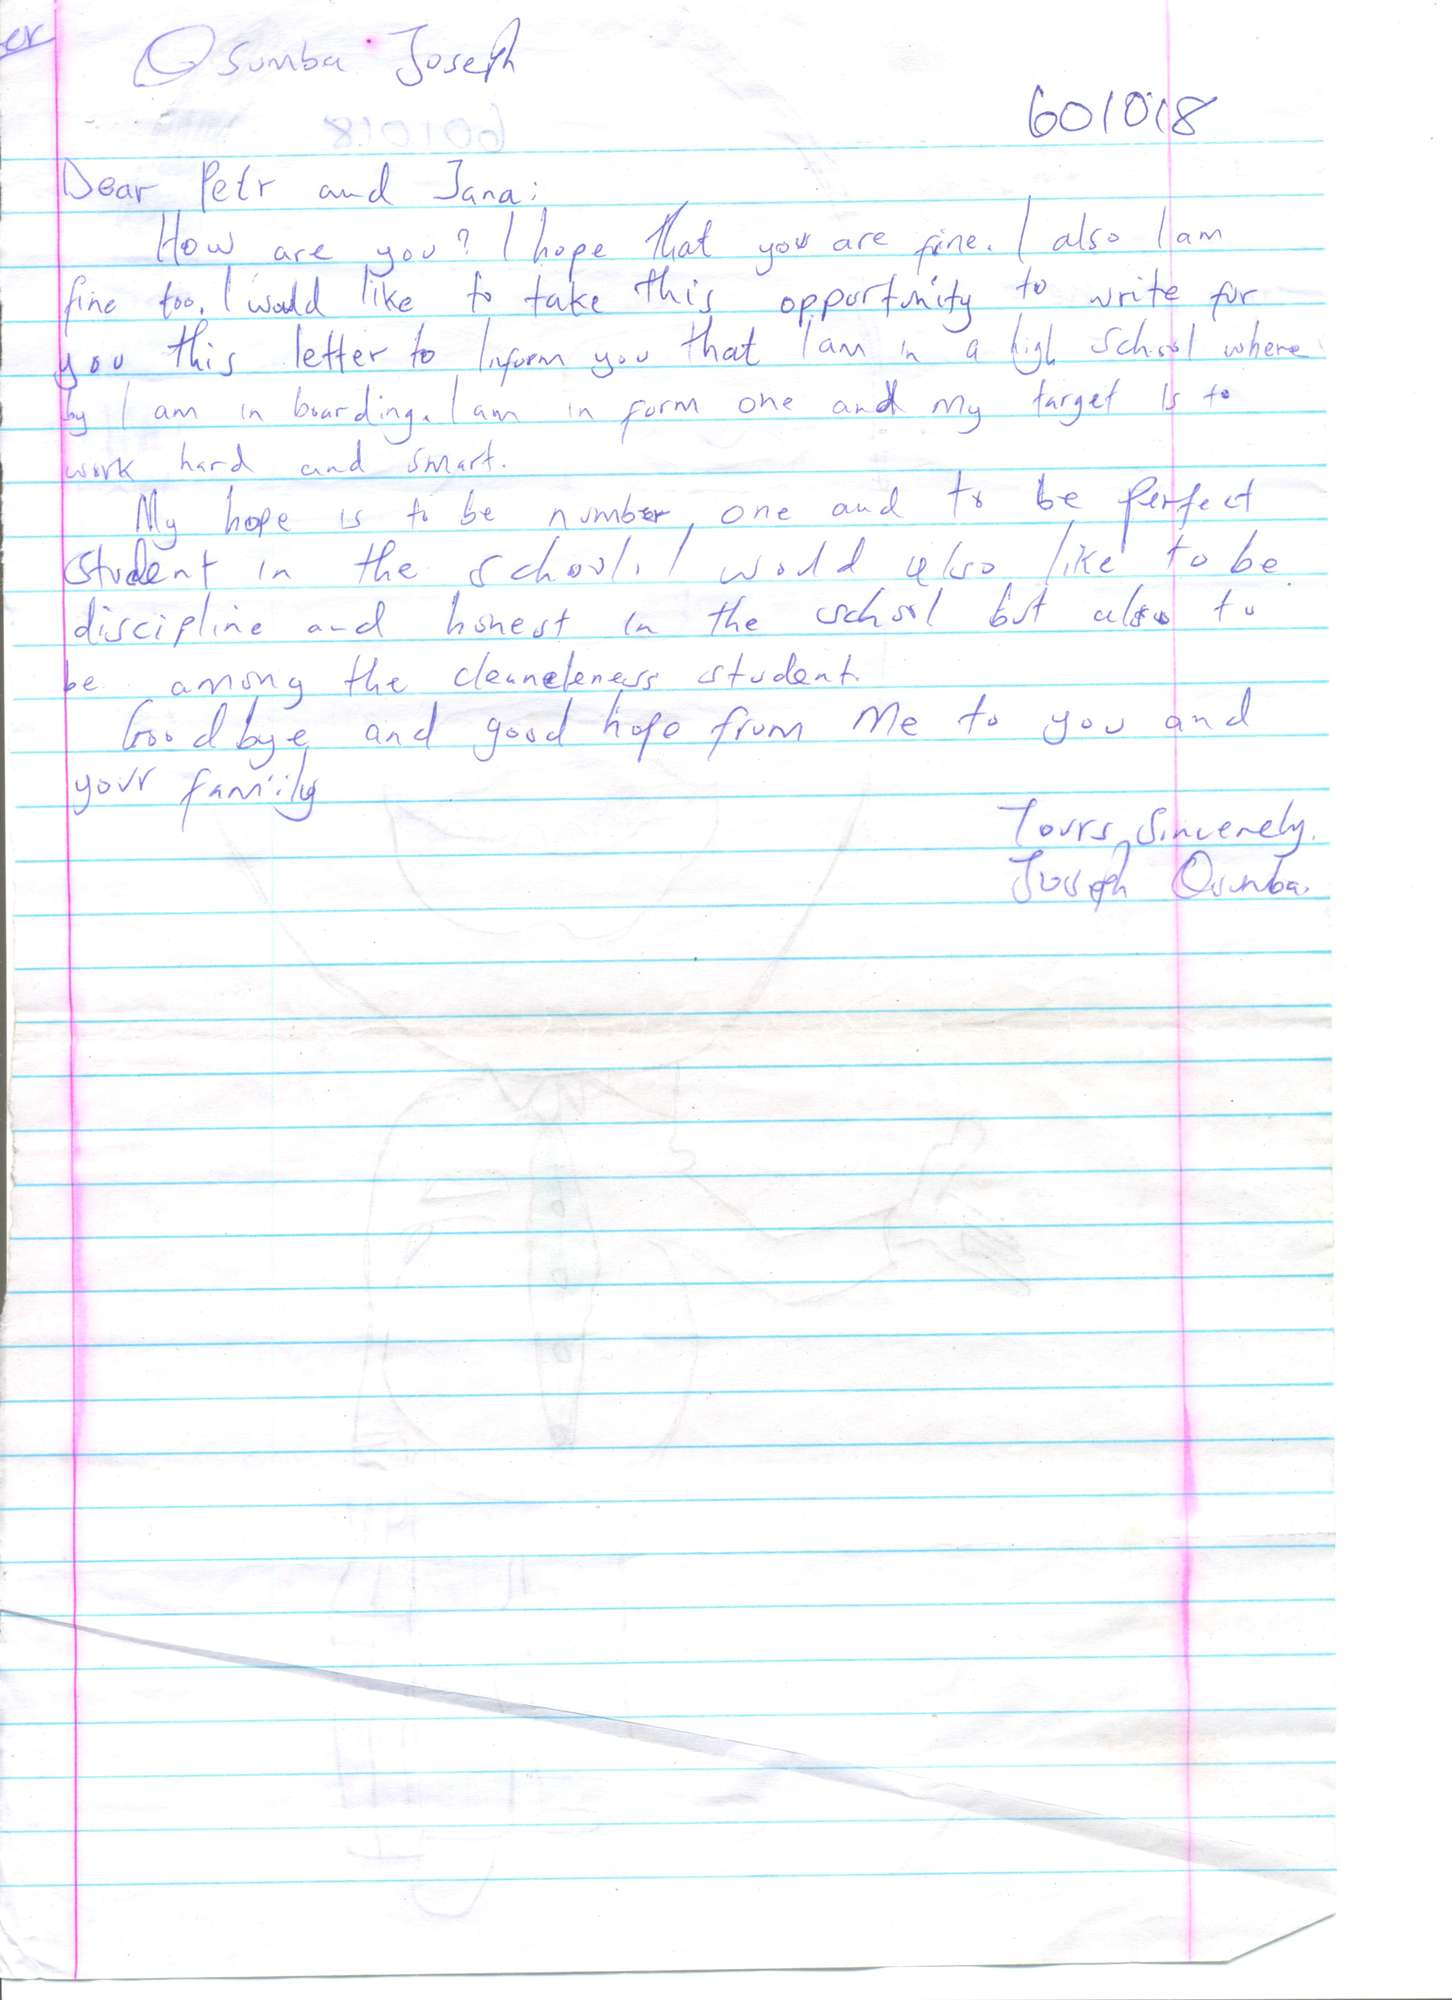 er
Osumba Joseph
601018
Dear Petr and Jana:
How are you? I hope that you are fine. I also I am
fine too. I would like to take this opportunity to write for
you this letter to Inform you that I am in a high school where
by I am in boarding. I am in form one and my target is to
work hard and smart.
My hope is to be number one and to be perfect
student in the school. I would also like to be
discipline and honest in the school but also to
be among the cleaneleness student.
Goodbye and good hope from Me to you and
your family
Yours Sincerely.
Joseph Osumba.